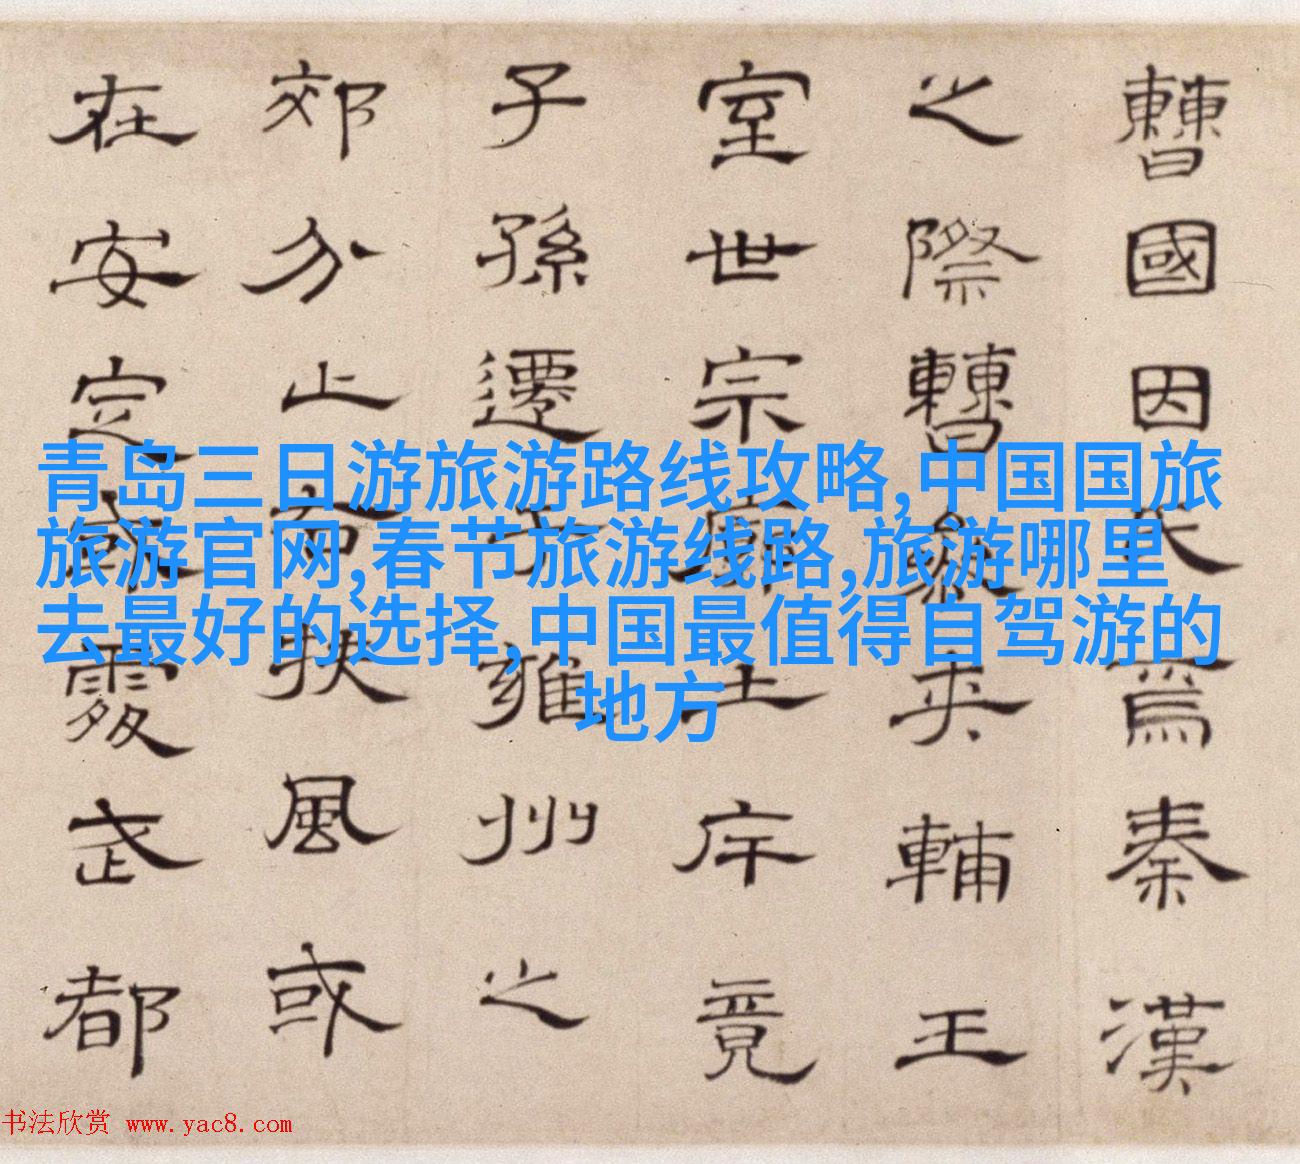 青岛三日游旅游路线攻略,中国国旅
旅游官网,春节旅游线路,旅游哪里
去最好的选择,中国最值得自驾游的
地方
曹國因氏焉秦漢
之際曹參夾輔王
室世宗廓土斥竟
子孫遷于雍州之
郊分止右扶風或
在安定或處武都
书法欣赏 www.yac8.com